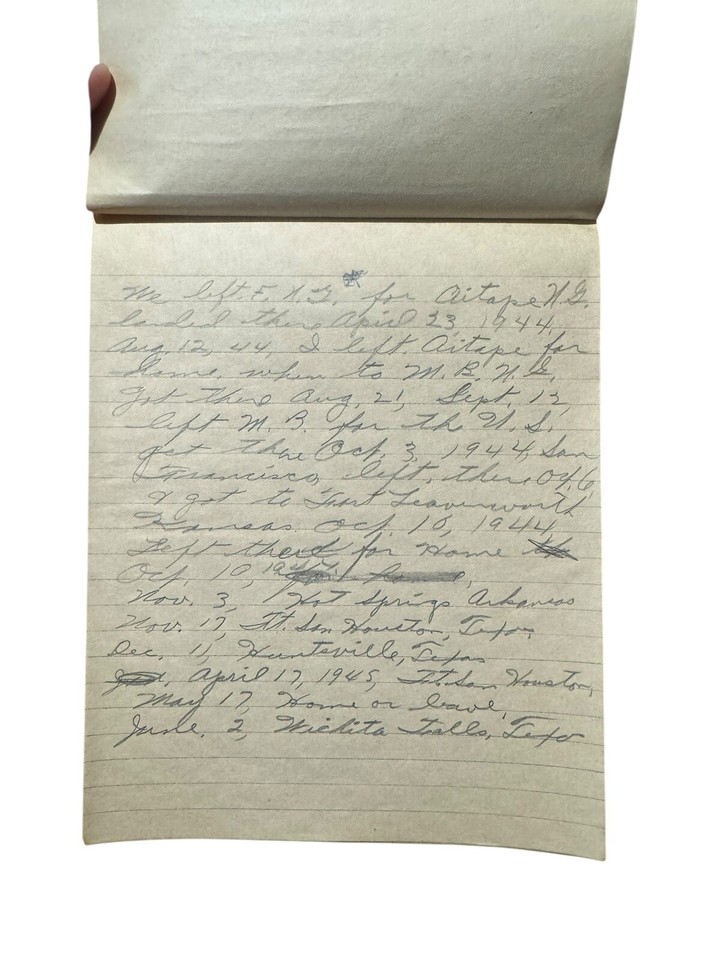 We left F. N. G. for Aitape N. G.
landed there April 23, 1944,
Aug. 12, 44, I left Aitape for
Home, when to M. B. N. G.
got there Aug. 21, Sept. 13,
left M. B. for the U. S.
got there Oct. 3, 1944, San
Francisco, left, there Oct 6,
I got to Fort Leavenworth
Kansas Oct, 10, 1944,
Left there for Home
Oct, 10, 1944
Nov. 3, Hot Springs Arkansas
Nov. 17, Ft. San Houston, Texas
Dec. 11, Huntsville, Texas
April 17, 1945, Ft. San Houston,
May 17, Home on leave,
June, 2, Wichita Falls, Texas